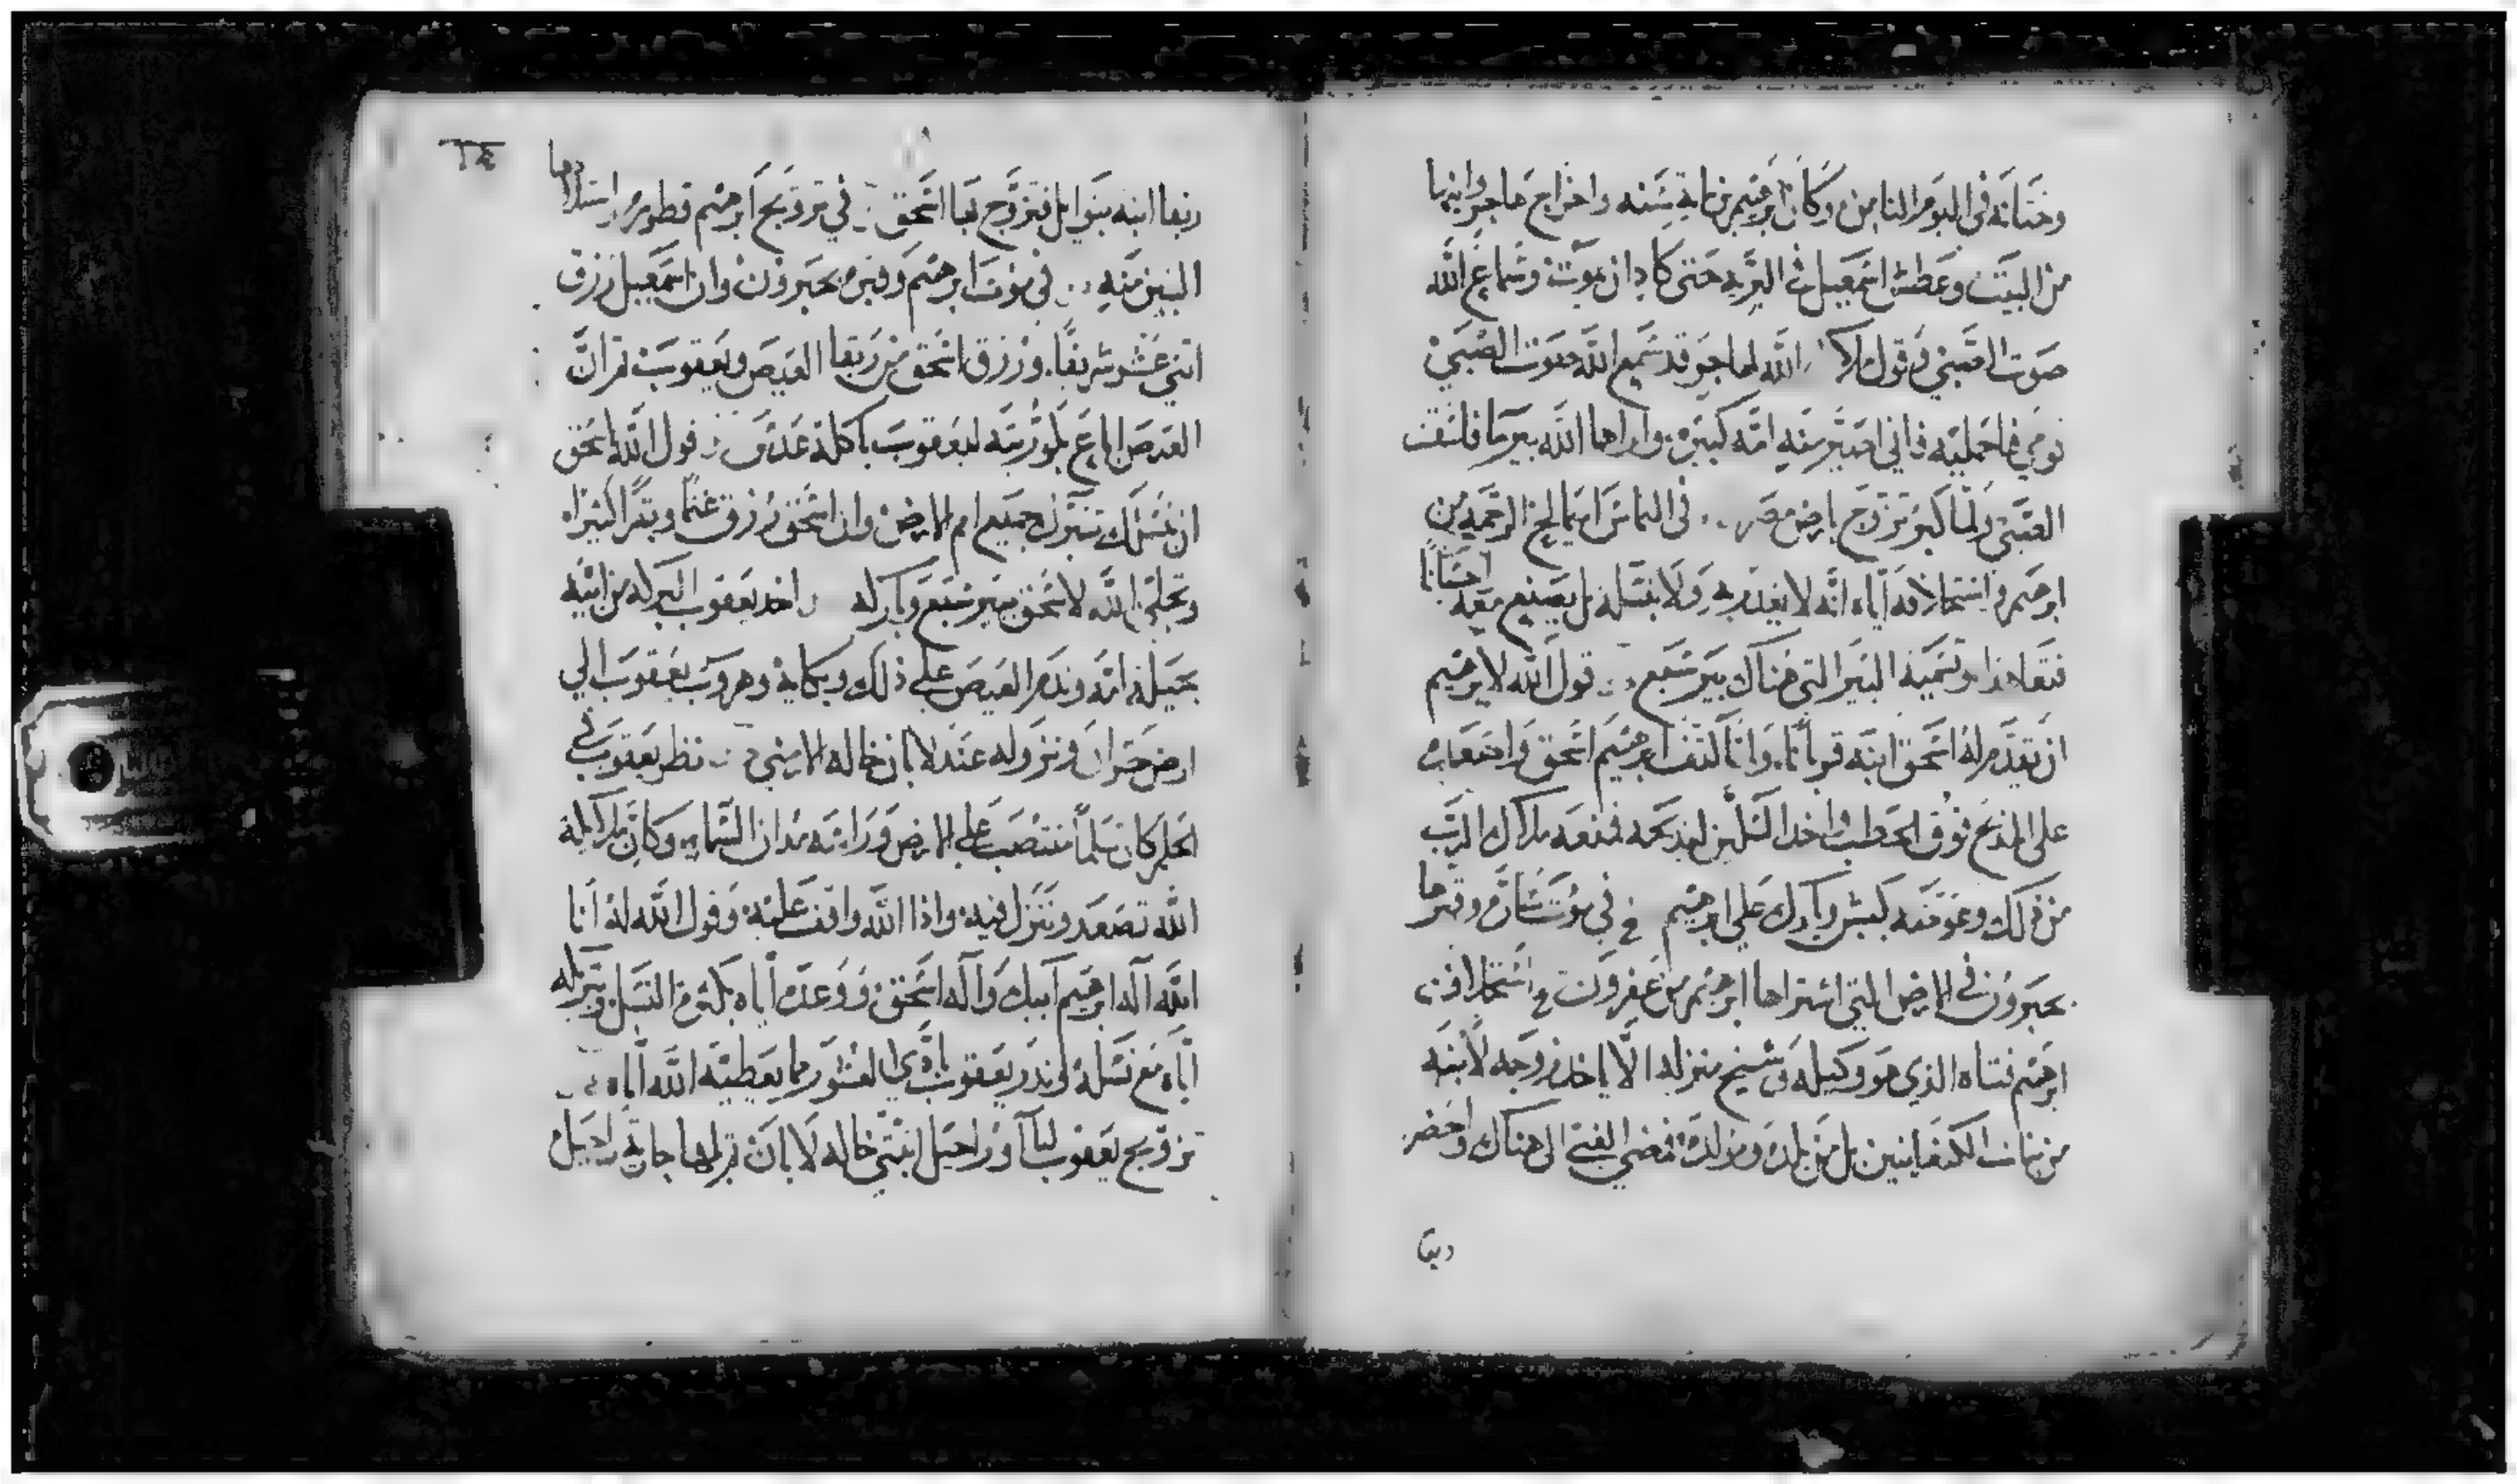 وختانه في اليوم الثامن وكان ابرهيم بن ماية سنه واخراج هاجر وابنها
من البيت وعطش اسمعيل في البريه حتى كاد ان يموت وسماع الله
صوت الصبي وقول ملاك الله لهاجر قد سمع الله صوت الصبي
قومي فاحمليه فاني اصير منه امه كبيره واراها الله بير ما فاسقت
الصبي ولما كبر تزوج بارض مصر في التماس ابيمالخ الرحمه من
ابرهيم واستحلافه اياه انه لا يغدر به ولا بنسله بل يصنع معه احسانا
فتعاهدا وتسمية البير التي هناك بير سبع قول الله لابرهيم
ان يقدم له اسحق ابنه قربانا وانا كتف ابرهيم اسحق واصعابه
على المذبح فوق الحطب واخد السكين ليذبحه فمنعه ملاك الرب
من ذلك وعوضه كبش وبارك على ابرهيم في موت ساره وقبرها
بحبرون في الارض التي اشتراها ابرهيم من عفرون واستحلاف
ابرهيم فتاه الذي هو وكيله وشيخ منزله الا ياخد زوجه لابنه
من بنات الكنعانيين بل من بلده ومولده فمضى الفتى الى هناك واحضر
ربقا
١٤
ربقا ابنه بتوايل فتزوج بها اسحق في تزويج ابرهيم قطوره واستلادها
البنين منه في موت ابرهيم وقبره بحبرون وان اسمعيل رزق
اثني عشر شريفا ورزق اسحق من ربقا العيص ويعقوب ثم ان
العيص اباع بكوريته ليعقوب باكلة عدس قول الله لاسحق
ان بنسلك تتبرك جميع امم الارض وان اسحق رزق غنما وبقرا كثيرا
وتجلى الله لاسحق ببير سبع وبارك له واخد يعقوب البركه من ابيه
بحيلة امه وندم العيص على ذلك وبكايه وهروب يعقوب الي
ارض حران ونزوله عند لابان خاله الارمني نظر يعقوب في
الحلم كان سلما منتصب على الارض وراسه مدان السماء وكان ملايكة
الله تصعد وتنزل فيه واذا الله واقف عليه وقول الله له انا
الله اله ابرهيم ابيك واله اسحق ووعده اياه بكثرة النسل وتبركه
اياه مع نسله وندر يعقوب يادي العشور مما يعطيه الله اياه
تزويج يعقوب ليا وراحيل ابنتي خاله لابان